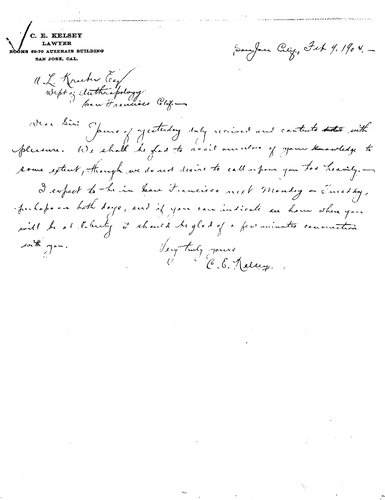 C. E. KELSEY
LAWYER
ROOMS 68-70 AUZERAIS BUILDING
SAN JOSE, CAL.
San Jose Calif, Feb 9, 1904.
A L Kroeber Esq
Dept of Anthropology
San Francisco Calif
Dear Sir: Yours of yesterday duly received and contents noted with
pleasure. We shall be glad to avail ourselves of your knowledge to
some extent, though we do not desire to call upon you too heavily.
I expect to be in San Francisco next Monday or Tuesday,
perhaps on both days, and if you can indicate an hour when you
will be at liberty I should be glad of a few minutes conversation
with you.
Very truly yours
C. E. Kelsey.